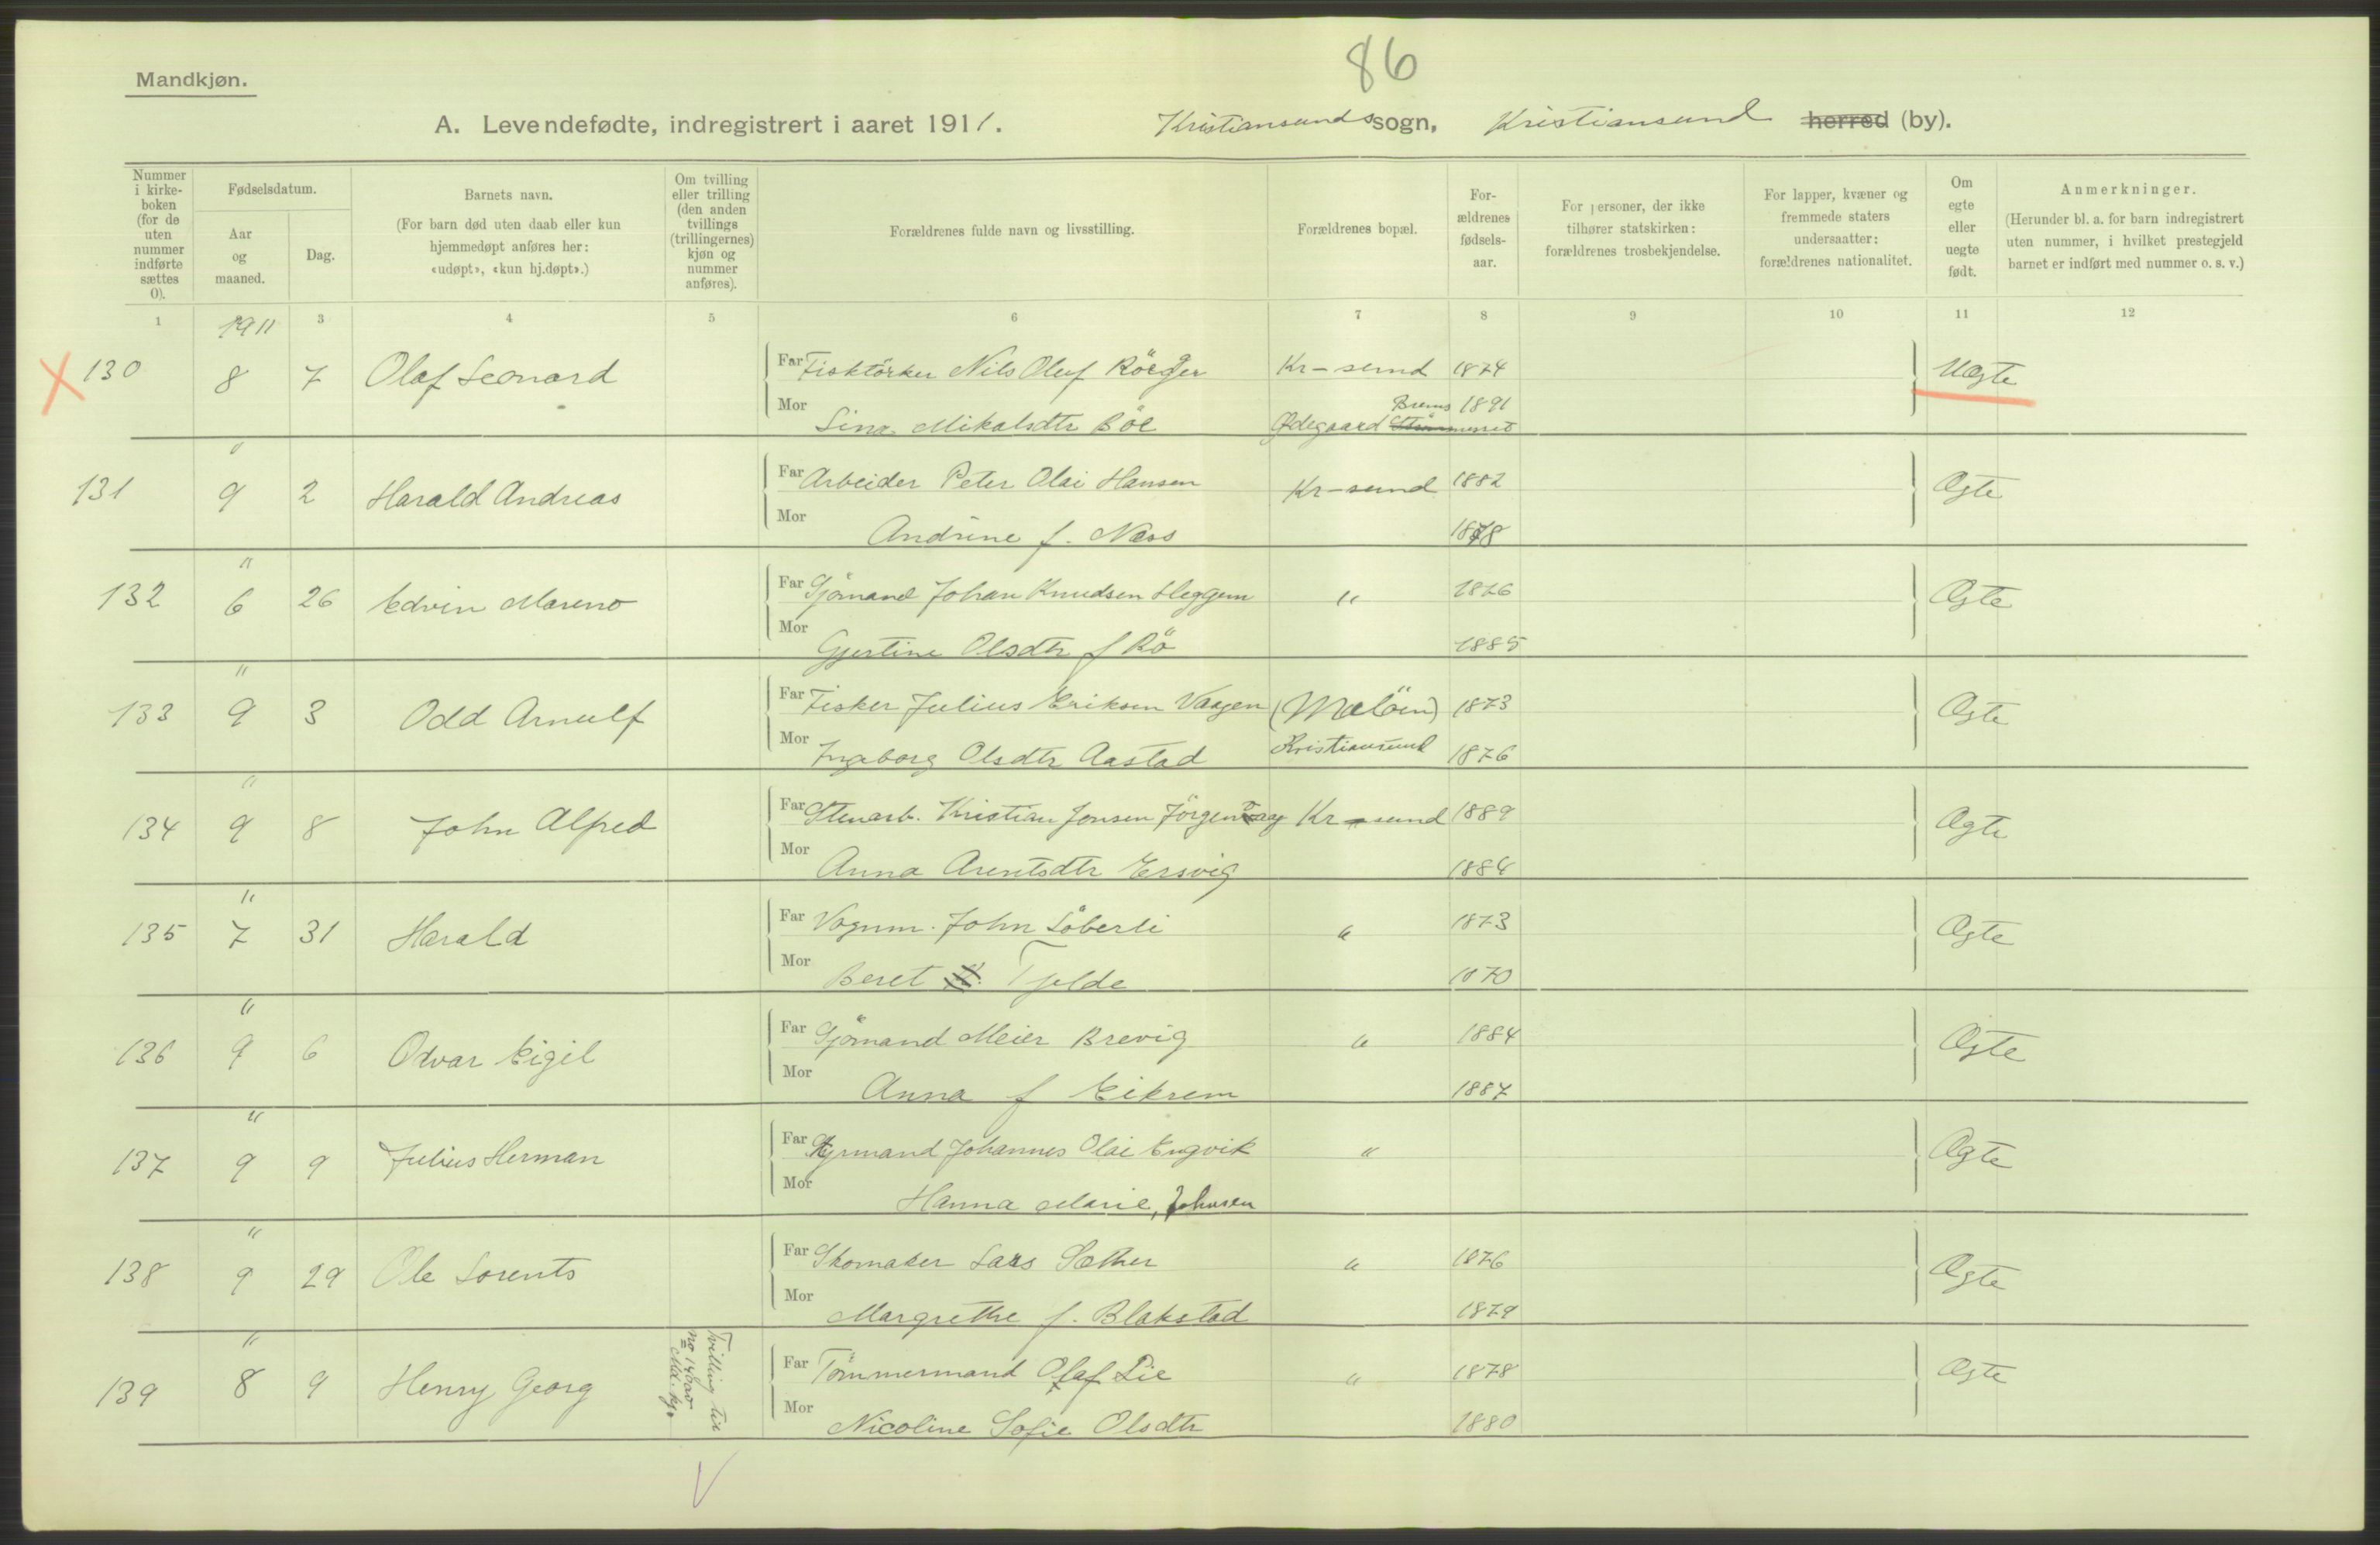 86
Mandkjøn.
A. Levendefødte, indregistrert i aaret 1911. Kristiansunds sogn, Kristiansund herred (by).
Nummer i kirkeboken (for de uten nummer indførte sættes 0).
Fødselsdatum.
Aar og maaned.
Dag.
Barnets navn.
(For barn død uten daab eller kun hjemmedøpt anføres her: «udøpt», «kun hj.døpt».)
Om tvilling eller trilling (den anden tvillings (trillingernes) kjøn og nummer anføres).
Forældrenes fulde navn og livsstilling.
Forældrenes bopæl.
Forældrenes fødselsaar.
For personer, der ikke tilhører statskirken: forældrenes trosbekjendelse.
For lapper, kvæner og fremmede staters undersaatter: forældrenes nationalitet.
Om egte eller uegte født.
Anmerkninger.
(Herunder bl. a. for barn indregistrert uten nummer, i hvilket prestegjeld barnet er indført med nummer o. s. v.)
1 3 4 5 6 7 8 9 10 11 12
1911
X 130 8 7 Olaf Leonard Far Fisktörker Nils Oluf Kr-sund 1874 Uægte
Mor Lina Mikalsdtr Böe Ødegaard Brems 1891
"
131 9 2 Harald Andreas Far Arbeider Peter Olai Hansen Kr-sund 1882 Ægte
Mor Andrine f. Næss 1878
"
132 6 26 Edvin Mareno Far Sjömand Johan Knudsen Heggem " 1876 Ægte
Mor Gjertine Olsdtr f Rö 1885
"
133 9 3 Odd Arnulf Far Fisker Julius Eriksen Vaagen (Mælöen) 1873 Ægte
Mor Ingeborg Olsdtr Aastad Kristiansund 1876
"
134 9 8 John Alfred Far Stenarb. Kristian Jonsen Jörgenvaag Kr-sund 1889 Ægte
Mor Anna Arentsdtr Ersvig 1884
"
135 7 31 Harald Far Vognm. John Söberli " 1873 Ægte
Mor Beret Tjelde 1870
"
136 9 6 Odvar Eigil Far Sjömand Meier Brevig " 1884 Ægte
Mor Anna f Eikrem 1887
"
137 9 9 Julius Herman Far Styrmand Johannes Olai Engvik " Ægte
Mor Hanna Marie, Johnsen
"
138 9 29 Ole Lorents Far Skomaker Lars Sæther " 1876 Ægte
Mor Margrethe f. Blakstad 1879
"
139 8 9 Henry Georg Tvilling til no 140 av Far Tömmermand Olaf Lie " 1878 Ægte
Mor Nicoline Sofie Olsdtr 1880